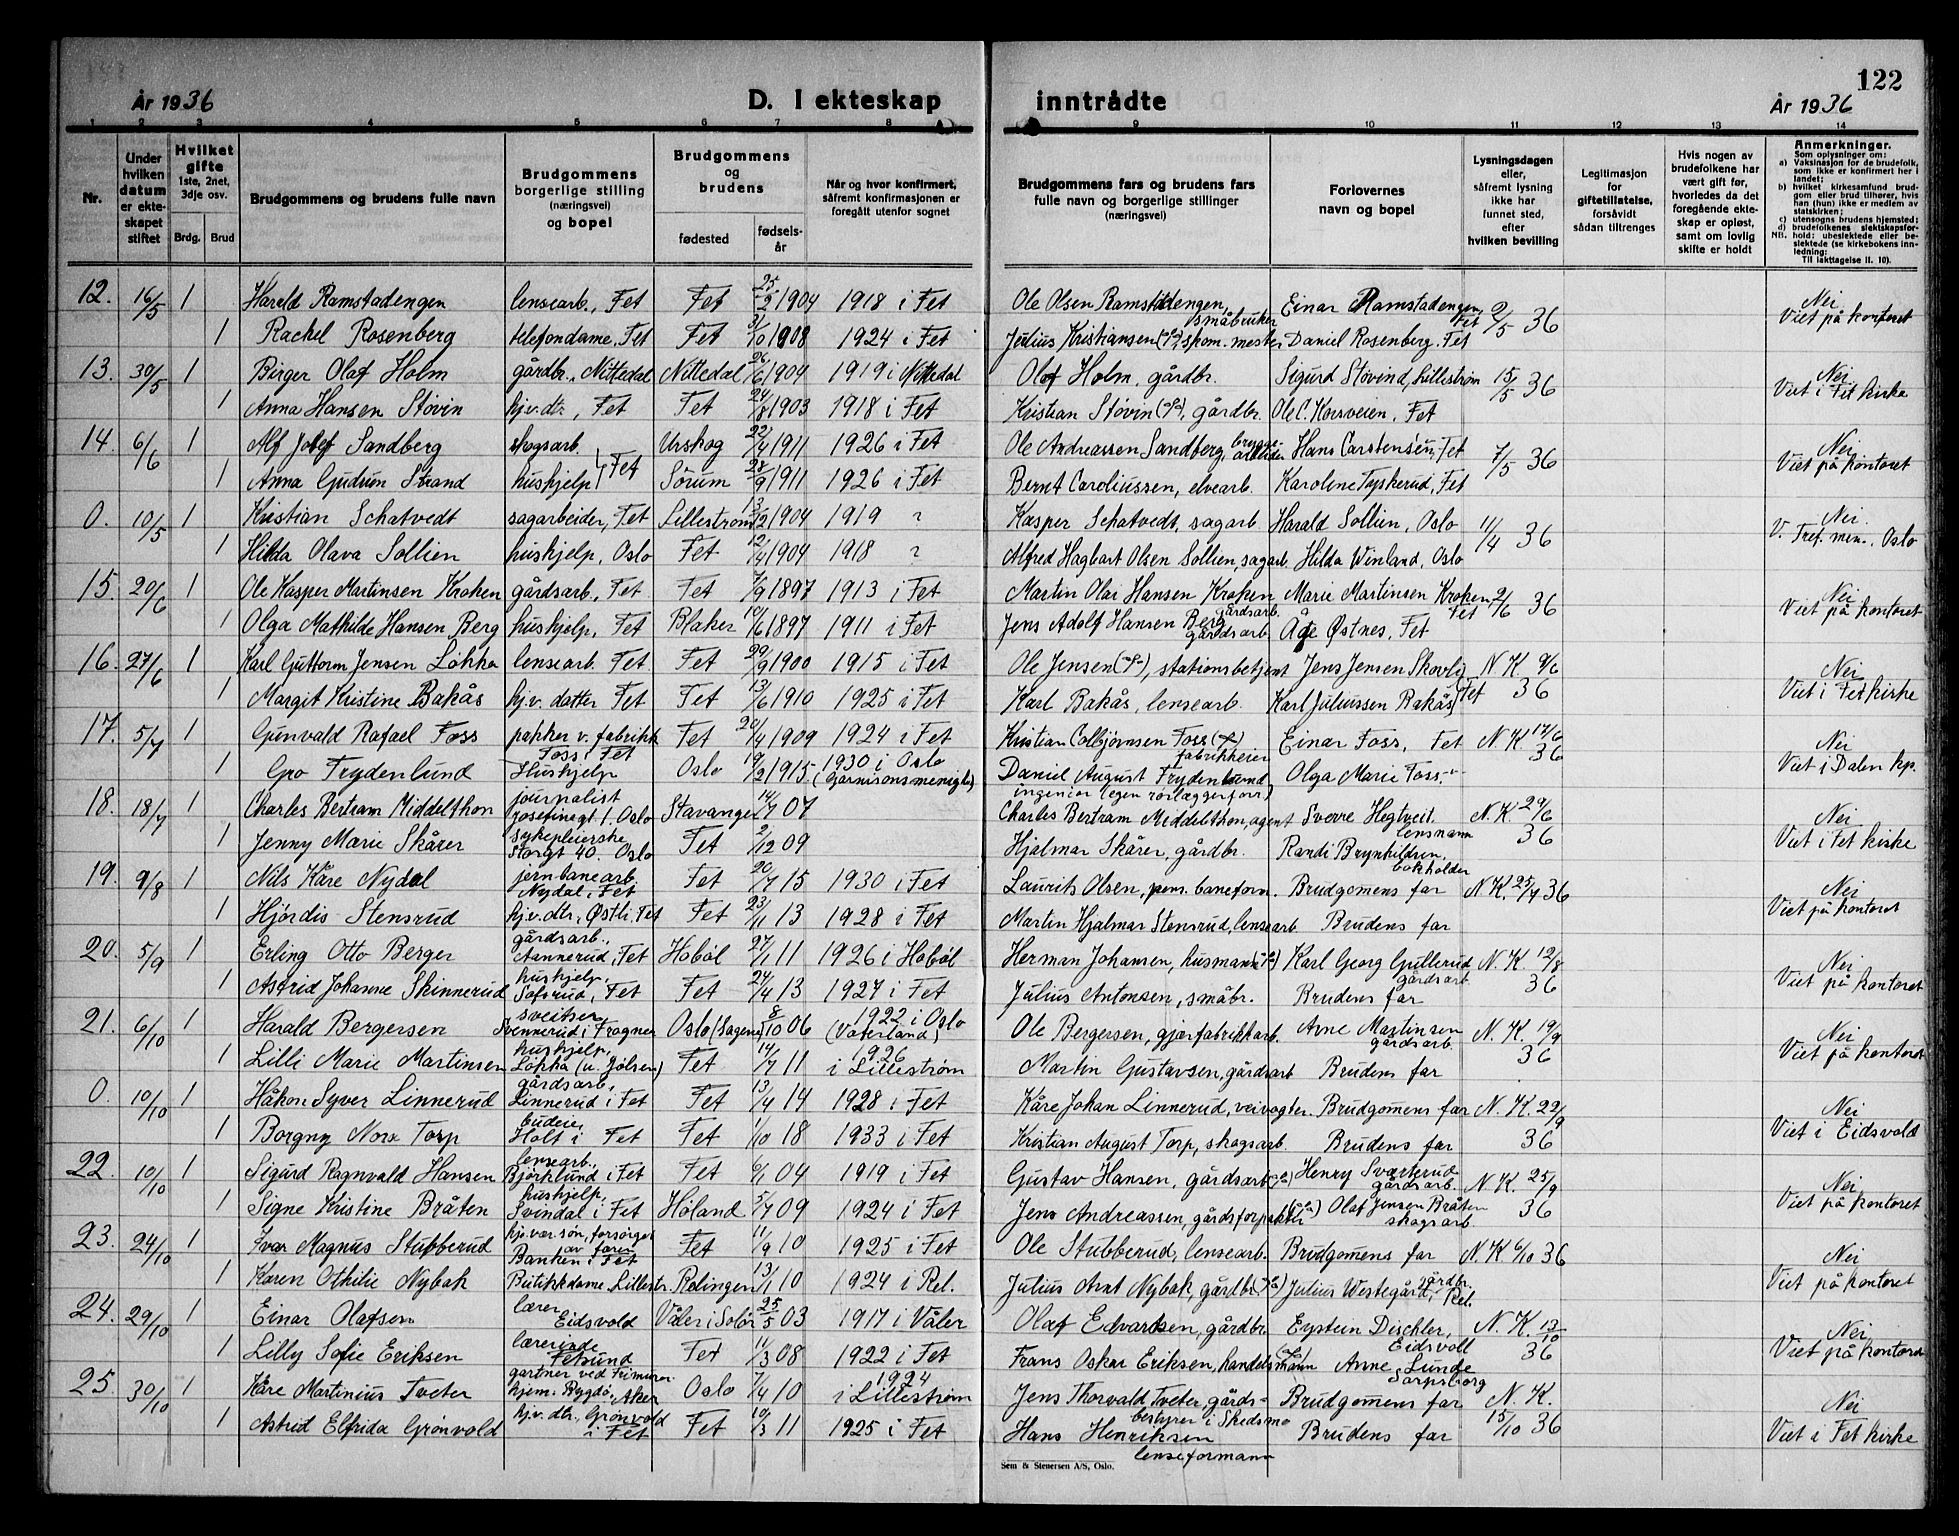 År 1936 D. I ekteskap
inntrådte År 1936 122
1 2 3 4 5 6 7 8
9 10 11 12 13 14
Nr. Under hvilken datum er ekteskapet stiftet
Hvilket gifte 1ste, 2net, 3dje osv. Brdg. Brud
Brudgommens og brudens fulle navn
Brudgommens borgerlige stilling (næringsvei) og bopel
Brudgommens og brudens fødested fødselsår
Når og hvor konfirmert, såfremt konfirmasjonen er foregått utenfor sognet
Brudgommens fars og brudens fars fulle navn og borgerlige stillinger (næringsvei)
Forlovernes navn og bopel
Lysningsdagen eller, såfremt lysning ikke har funnet sted, efter hvilken bevilling
Legitimasjon for giftetillatelse, forsåvidt sådan tiltrenges
Hvis nogen av brudefolkene har vært gift før, hvorledes da det foregående ekteskap er opløst, samt om lovlig skifte er holdt
Anmerkninger.
Som oplysninger om:
a) Vaksinasjon for de brudefolk, som ikke er konfirmert her i landet;
b) hvilket kirkesamfund brudgom eller brud tilhører, hvis han (hun) ikke er medlem av statskirken;
c) utensogns brudens hjemsted;
d) brudefolkenes slektskapsforhold: ubeslektede eller beslektede (se kirkebokens innledning:
NB. Til iakttagelse II. 10).
12. 16/5 1 Harald Ramstadengen lensearb., Fet Fet 25/2 1904 1918 i Fet Ole Olsen Ramstadengen, småbruker Einar Ramstadengen Fet 2/5 36 Nei
1 Rachel Rosenberg telefondame, Fet Fet 31/10 1908 1924 i Fet Julius Kristiansen skom. mester Daniel Rosenberg, Fet Viet på kontoret
13. 30/5 1 Birger Olaf Holm gårdbr., Nittedal Nittedal 26/6 1904 1919 i Nittedal Olaf Holm, gårdbr. Sigurd Støvind, Lillestrøm 15/5 36 Nei
1 Anna Hansen Støvin hj.v. dtr., Fet Fet 24/8 1903 1918 i Fet Kristian Støvin, gårdbr. Ole C. Korsveien, Fet Viet i Fet kirke
14. 6/6 1 Alf Josef Sandberg skogsarb. Fet Urskog 22/4 1911 1926 i Fet Ole Andreassen Sandberg, bryggearbeider Hans Carstensen, Fet 7/5 36 Nei
1 Anna Gudrun Strand hushjelp Sørum 28/9 1911 1926 i Fet Bernt Caroliussen, elvearb. Karoline Tyskerud, Fet Viet på kontoret
0. 10/5 1 Kristian Schatvedt sagarbeider, Fet Lillestrøm 13/12 1904 1919 ? Kasper Schatvedt, sagarb. Harald Sollien, Oslo 11/4 36 Nei
1 Hilda Olava Sollien hushjelp, Oslo Fet 12/4 1904 1918 ? Alfred Hagbart Olsen Sollien, sagarb. Hilda Winland, Oslo V. Tref. men., Oslo
15. 20/6 1 Ole Kasper Martinsen Kroken gårdsarb., Fet Fet 7/9 1897 1913 i Fet Martin Olai Hansen Kroken gårdsarb. Marie Martinsen Kroken Fet 2/6 36 Nei
1 Olga Mathilde Hansen Berg hushjelp, Fet Blaker 10/6 1897 1911 i Fet Jens Adolf Hansen Berg gårdsarb. Åge Østnes, Fet Viet på kontoret
16. 27/6 1 Karl Guttorm Jensen Løkka lensearb. Fet Fet 29/9 1900 1915 i Fet Ole Jensen, stationsbetjent Jens Jensen Skovli N.K. 9/6 Nei
1 Margit Kristine Bakås hj.v. datter Fet Fet 13/6 1910 1925 i Fet Karl Bakås, lensearb. Karl Juliussen Bakås Fet 36 Viet i Fet kirke
17. 5/7 1 Gunvald Rafael Foss pakker v. fabrikk Foss i Fet Fet 20/4 1909 1924 i Fet Kristian Colbjørnsen Foss fabrikkeier Einar Foss, Fet N.K. 17/6 36 Nei
1 Gro Frydenlund Hushjelp Oslo 19/2 1915 1930 i Oslo (Garnisonsmenigh.) Daniel August Frydenlund ingeniør (egen rørlæggerforr.) Olga Marie Foss -"- Viet i Dalen kp.
18. 18/7 1 Charles Bertram Middelthon journalist Josefinegt. 1. Oslo Stavanger 14/7 07 Charles Bertram Middelthon, agent Sverre Hegtveit, lensmann N.K. 29/6 36 Nei
1 Jenny Marie Skårer sykepleierske Storgt 40. Oslo Fet 2/12 09 Hjalmar Skårer, gårdbr. Randi Brynhildsen, bokholder Viet i Fet kirke
19. 9/8 1 Nils Kåre Nydal jernbanearb. Nydal i Fet Fet 20/7 15 1930 i Fet Laurits Olsen, pens. baneform. Brudgomens far N.K. 25/7 36 Nei
1 Hjørdis Stensrud hj.v. dtr., Østli, Fet Fet 23/11 13 1928 i Fet Martin Hjalmar Stensrud, lensearb Brudens far Viet på kontoret
20. 5/9 1 Erling Otto Berger gårdsarb., Fet Hobøl 27/1 11 1926 i Hobøl Herman Johansen, husmann Karl Georg Gullerud gårdsarb. N.K. 12/8 36 Nei
1 Astrid Johanne Skinnerud hushjelp, Fet Fet 24/4 13 1927 i Fet Julius Antonsen, småbr. Brudens far Viet på kontoret
21. 6/10 1 Harald Bergersen sveitser Svennerud i Frogner Oslo (Sagene) 8/10 06 1922 i Oslo (Vaterland) Ole Bergersen, gjærfabrikkarb. Arne Martinsen gårdsarb. N.K. 19/9 36 Nei
1 Lilli Marie Martinsen hushjelp, Løkka (u. Jølsen) Fet 14/7 11 1926 i Lillestrøm Martin Gustavsen, gårdsarb Brudens far Viet på kontoret
0. 10/10 1 Håkon Syver Linnerud gårdsarb., Linnerud i Fet Fet 13/4 14 1928 i Fet Kåre Johan Linnerud, veivogter. Brudgomens far N.K. 22/9 36 Nei
1 Borgny Nora Torp budeie Holt i Fet Fet 1/10 18 1933 i Fet Kristian August Torp, skogsarb. Brudens far Viet i Eidsvold
22. 10/10 1 Sigurd Ragnvald Hansen lensearb., Bjørklund i Fet Fet 6/1 04 1919 i Fet Gustav Hansen, gårdsarb. Henry Svarterud gårdsarb. N.K. 25/9 36 Nei
1 Signe Kristine Bråten hushjelp, Svindal i Fet Høland 5/7 09 1924 i Fet Jens Andreassen, gårdsforpakter Olaf Jensen Bråten skogsarb Viet på kontoret
23. 24/10 1 Ivar Magnus Stubberud hjv. søn, forsørget av faren Banken i Fet Fet 11/9 10 1925 i Fet Ole Stubberud, lensearb. Brudgomens far N.K. 6/10 36 Nei
1 Karen Othilie Nybak Butikkdame, Lillestr. Rælingen 13/1 10 1924 i Ræl. Julius Arnt Nybak, gårdbr. Julius Westegård, gårdbr. Ræl. Viet på kontoret
24. 29/10 1 Einar Olafsen lærer Eidsvold Våler i Solør 25/5 03 1917 i Våler Olaf Edvardsen, gårdbr. Eystein Dischler, Eidsvoll N.K. 13/10 36 Nei
1 Lilly Sofie Eriksen lærerinde Fetsund Fet 11/3 08 1922 i Fet Frans Oskar Eriksen, handelsmann Anne Lunde Sarpsborg Viet på kontoret
25. 30/10 1 Kåre Martinius Tveter gartner ved Frimurerhjem. Bygdø, Aker Oslo 7/4 10 1924 i Lillestrøm Jens Thorvald Tveter, gårdsbestyrer i Skedsmo Brudgomens far N.K. 15/10 36 Nei
1 Astrid Elfrida Grønvold hj.v. dtr., Grønvold i Fet Fet 10/3 11 1925 i Fet Hans Henriksen lenseformann Brudens far Viet i Fet kirke
Sem & Stenersen A/S, Oslo.